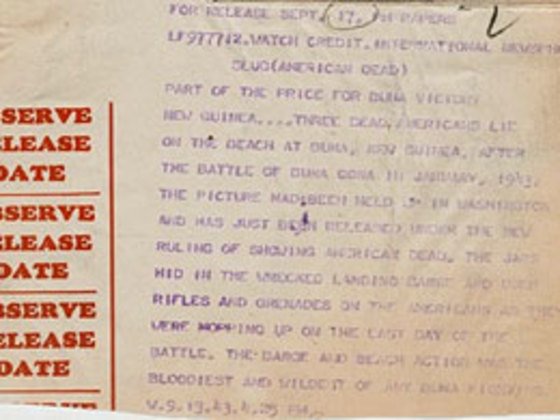 FOR RELEASE SEPT. 17, PM PAPERS
LF977712.WATCH CREDIT.INTERNATIONAL
SLUG(AMERICAN DEAD)
PART OF THE PRICE FOR BUNA VICTORY
NEW GUINEA....THREE DEAD AMERICANS LIE
ON THE BEACH AT BUNA, NEW GUINEA, AFTER
THE BATTLE OF BUNA GONA IN JANUARY, 1943.
THE PICTURE HAD BEEN HELD UP IN WASHINGTON
AND HAS JUST BEEN RELEASED UNDER THE NEW
RULING OF SHOWING AMERICAN DEAD. THE JAPS
HID IN THE WRECKED LANDING BARGE AND USED
RIFLES AND GRENADES ON THE AMERICANS AS THEY
WERE MOPPING UP ON THE LAST DAY OF THE
BATTLE. THE BARGE AND BEACH ACTION WAS THE
BLOODIEST AND WILDEST OF ANY BUNA FIGHTING
W.9.13.43.4.25 PM..
SERVE
ELEASE
DATE
SERVE
ELEASE
DATE
SERVE
ELEASE
DATE